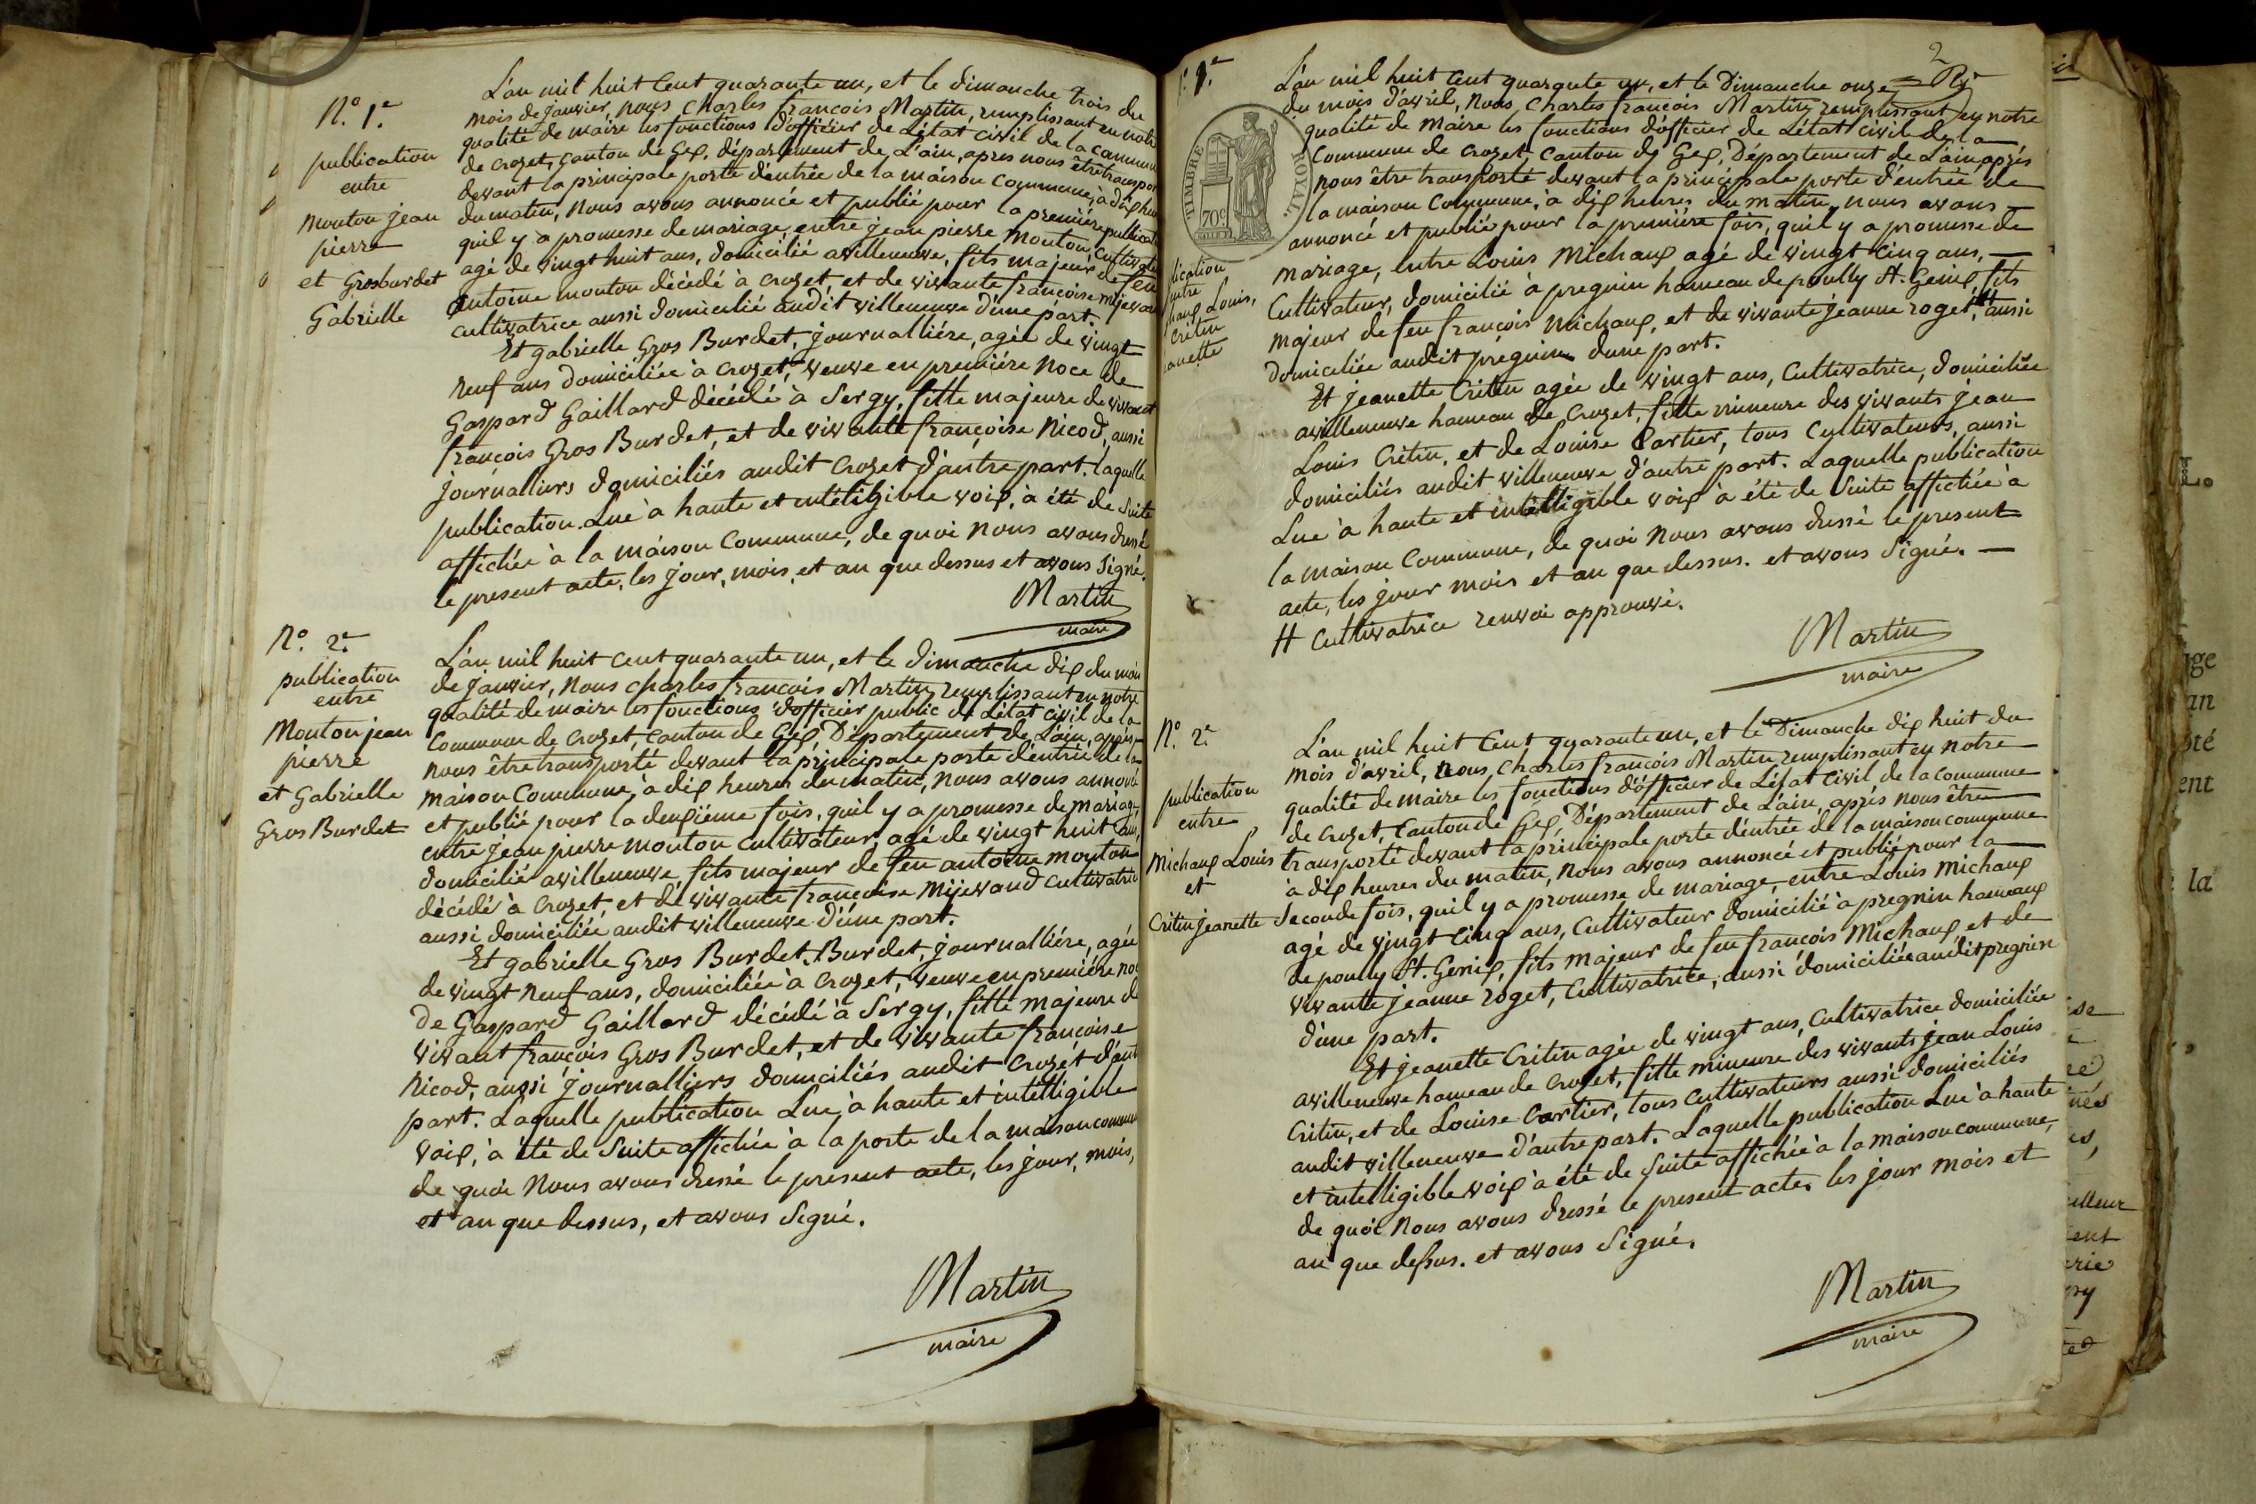 N.° 1.e
publication
entre
mouton jean
pierre
et Grosburdet
Gabrielle
L'an mil huit Cent quarante un, et le dimanche trois du
mois de janvier, nous Charles françois Martin, remplissant en notre
qualité de maire les fonctions d'officier de L'état Civil de la Commune
de crozet, Canton de Gex, département de L'ain, apres nous être transpor
devant la principale porte d'entrée de la maison Commune, à dix heu
du matin, nous avons annoncé et publié pour la première publicati
quil y a promesse de mariage, entre jean pierre mouton, Cultivate
agé de vingt huit ans, domicilié avilleneuve, fils majeur de feu
antoine mouton décédé à crozet, et de vivante françoise mijevan
cultivatrice aussi domicilié audit villeneuve d'une part.
Et gabrielle Gros Burdet, journallière, agée de vingt
neuf ans domiciliée à crozet, veuve en première noce de
Gaspard Gaillard décédé à Sergy, fille majeure de vivant
françois Gros Burdet, et de vivante françoise Nicod, aussi
journalliers domiciliés audit Crozet d'autre part. laquelle
publication Lue à haute et inteligible voix, à été de suite
affichée à la maison Commune, de quoi nous avons dressé
le present acte, les jour, mois, et an que dessus et avons signé.
Martin
maire
N.° 2.e
publication
entre
Mouton jean
pierre
et Gabrielle
Gros Burdet
L'an mil huit Cent quarante un, et le dimanche dix du mois
de janvier, Nous Charles françois Martin, remplissant en notre
qualité de maire les fonctions d'officier public de L'état civil de la
Commune de crozet, Canton de Gex, Département de L'ain, apres
nous être transporté devant la principale porte d'entrée de la
maison Commune, à dix heures du matin, nous avons annoncé
et publié pour la deuxième fois, quil y a promesse de mariage,
entre jean pierre mouton cultivateur, agé de vingt huit ans,
domicilié avilleneuve, fils majeur de feu antoine mouton
décédé à crozet, et de vivante françoise Mijevand cultivatrice
aussi domiciliée audit villeneuve d'une part.
Et gabrielle Gros Burdet. Burdet, journallière, agée
de vingt neuf ans, domiciliée à crozet, veuve en première no
De Gaspard Gaillard décédé à Sergy, fille majeure de
vivant françois Gros Burdet, et de vivante françoise
Nicod, aussi journalliers domiciliés audit Crozet d'aut
part. Laquelle publication Lue, à haute et intelligible
voix, à été de suite affichée à la porte de la maison commune
de quoi Nous avons dressé le present acte, les jour, mois,
et an que dessus, et avons signé.
Martin
maire
2
N.° 1.e
TIMBRE ROYAL.
70c
lication
entre
haux Louis,
Crétin
anette
L'an mil huit Cent quarante un, et le Dimanche onze
du mois d'avril, Nous Charles françois Martin, remplissant en notre
qualité de Maire les fonctions d'officier de L'état civil de la
Commune de crozet, Canton de Gex, Département de L'ain, après
nous être transporté devant la principale porte d'entrée de
la maison Commune, à dix heures du matin, nous avons
annoncé et publié pour la première fois, quil y a promesse de
mariage, entre Louis Michaux agé de vingt Cinq ans,
Cultivateur, domicilié à pregnin hameau de poully St. Genix, fils
majeur de feu françois Michaux, et de vivante jeanne roget, # aussi
domiciliée audit prégnin d'une part.
Et jeanette Critin agée de vingt ans, Cultivatrice, domiciliée
avilleneuve hameau de Crozet, fille mineure des vivants jean
Louis Crétin, et de Louise Cartier, tous Cultivateurs, aussi
domiciliés audit villeneuve d'autre part. Laquelle publication
Lue à haute et intelligible voix à été de suite affichée à
la maison Commune, de quoi nous avons dressé le present
acte, les jour mois et an que dessus. et avons signé.
# Cultivatrice renvoi approuvé.
Martin
maire
N.° 2.e
publication
entre
Michaux Louis
et
Critin jeanette
L'an mil huit Cent quarante un, et le Dimanche dix huit du
mois d'avril, nous Charles françois Martin remplissant en notre
qualité de maire les fonctions d'officier de L'état Civil de la commune
de Crozet, Canton de Gex, Département de L'ain, après nous être
transporté devant la principale porte d'entrée de la maison commune
à dix heures du matin, nous avons annoncé et publié pour la
Seconde fois, quil y a promesse de mariage, entre Louis Michaux
agé de vingt Cinq ans, Cultivateur domicilié à pregnin hameaux
de poully St. Genix, fils majeur de feu françois Michaux et de
vivante jeanne roget, Cultivatrice, aussi domiciliée audit pregnin
d'une part.
Et jeanette Critin agée de vingt ans, Cultivatrice domiciliée
avilleneuve hameau de Crozet, fille mineure des vivants jean Louis
Critin, et de Louise Cartier, tous Cultivateurs aussi domiciliés
audit villeneuve d'autre part. Laquelle publication Lue à haute
et intelligible voix à été de suite affichée à la maison commune,
de quoi Nous avons dressé le present acte. les jour mois et
an que dessus. et avons signé.
Martin
maire